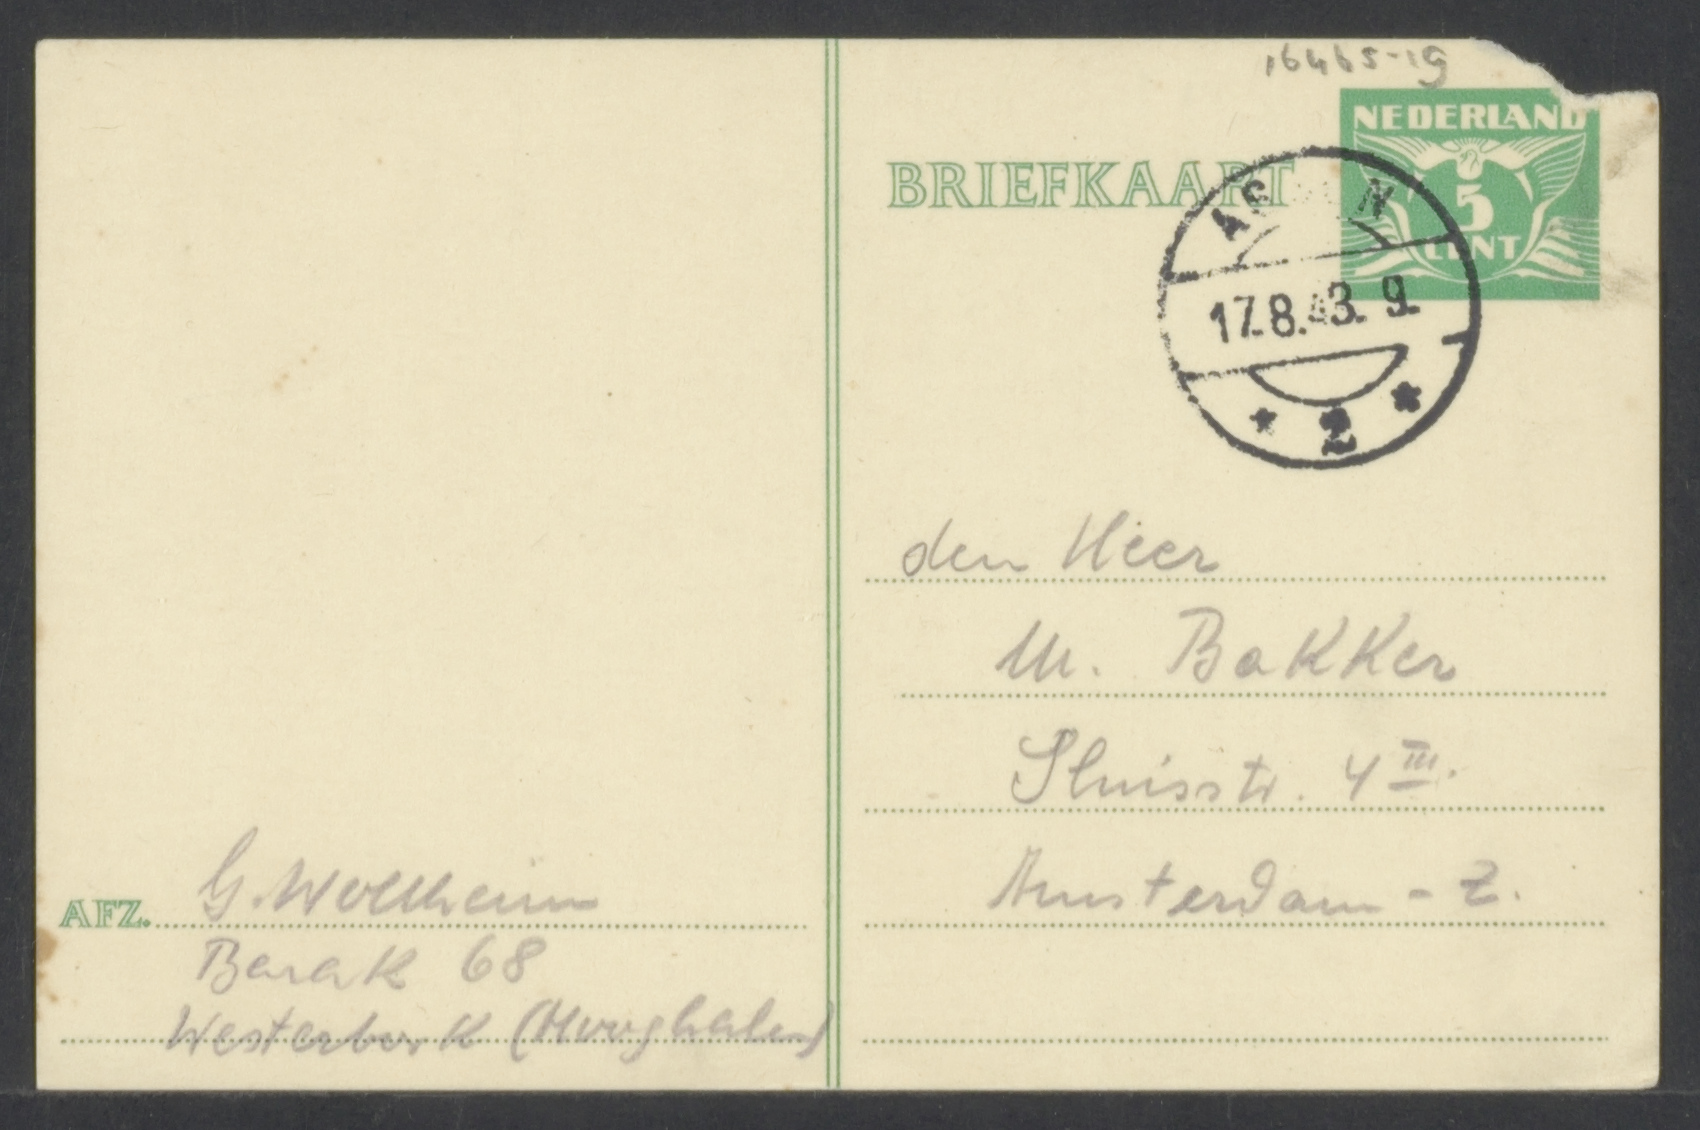 16465-19
NEDERLAND
5
CENT
BRIEFKAART
ASSEN
17.8.43. 9.
* 2 *
den Heer
M. Bakker
Sluisstr. 4 III.
Amsterdam - Z.
AFZ. G. Wollheim
Barak 68
Westerbork (Hooghalen)